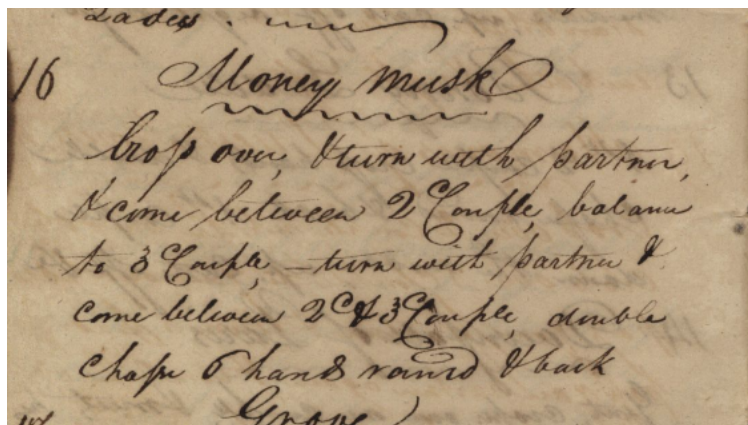 Ladies.
16 Money musk
Cross over, & turn with partner,
& come between 2 Couple, balance
to 3 Couple, – turn with partner &
come between 2C & 3 Couple, double
chase 6 hands round & back
Grove